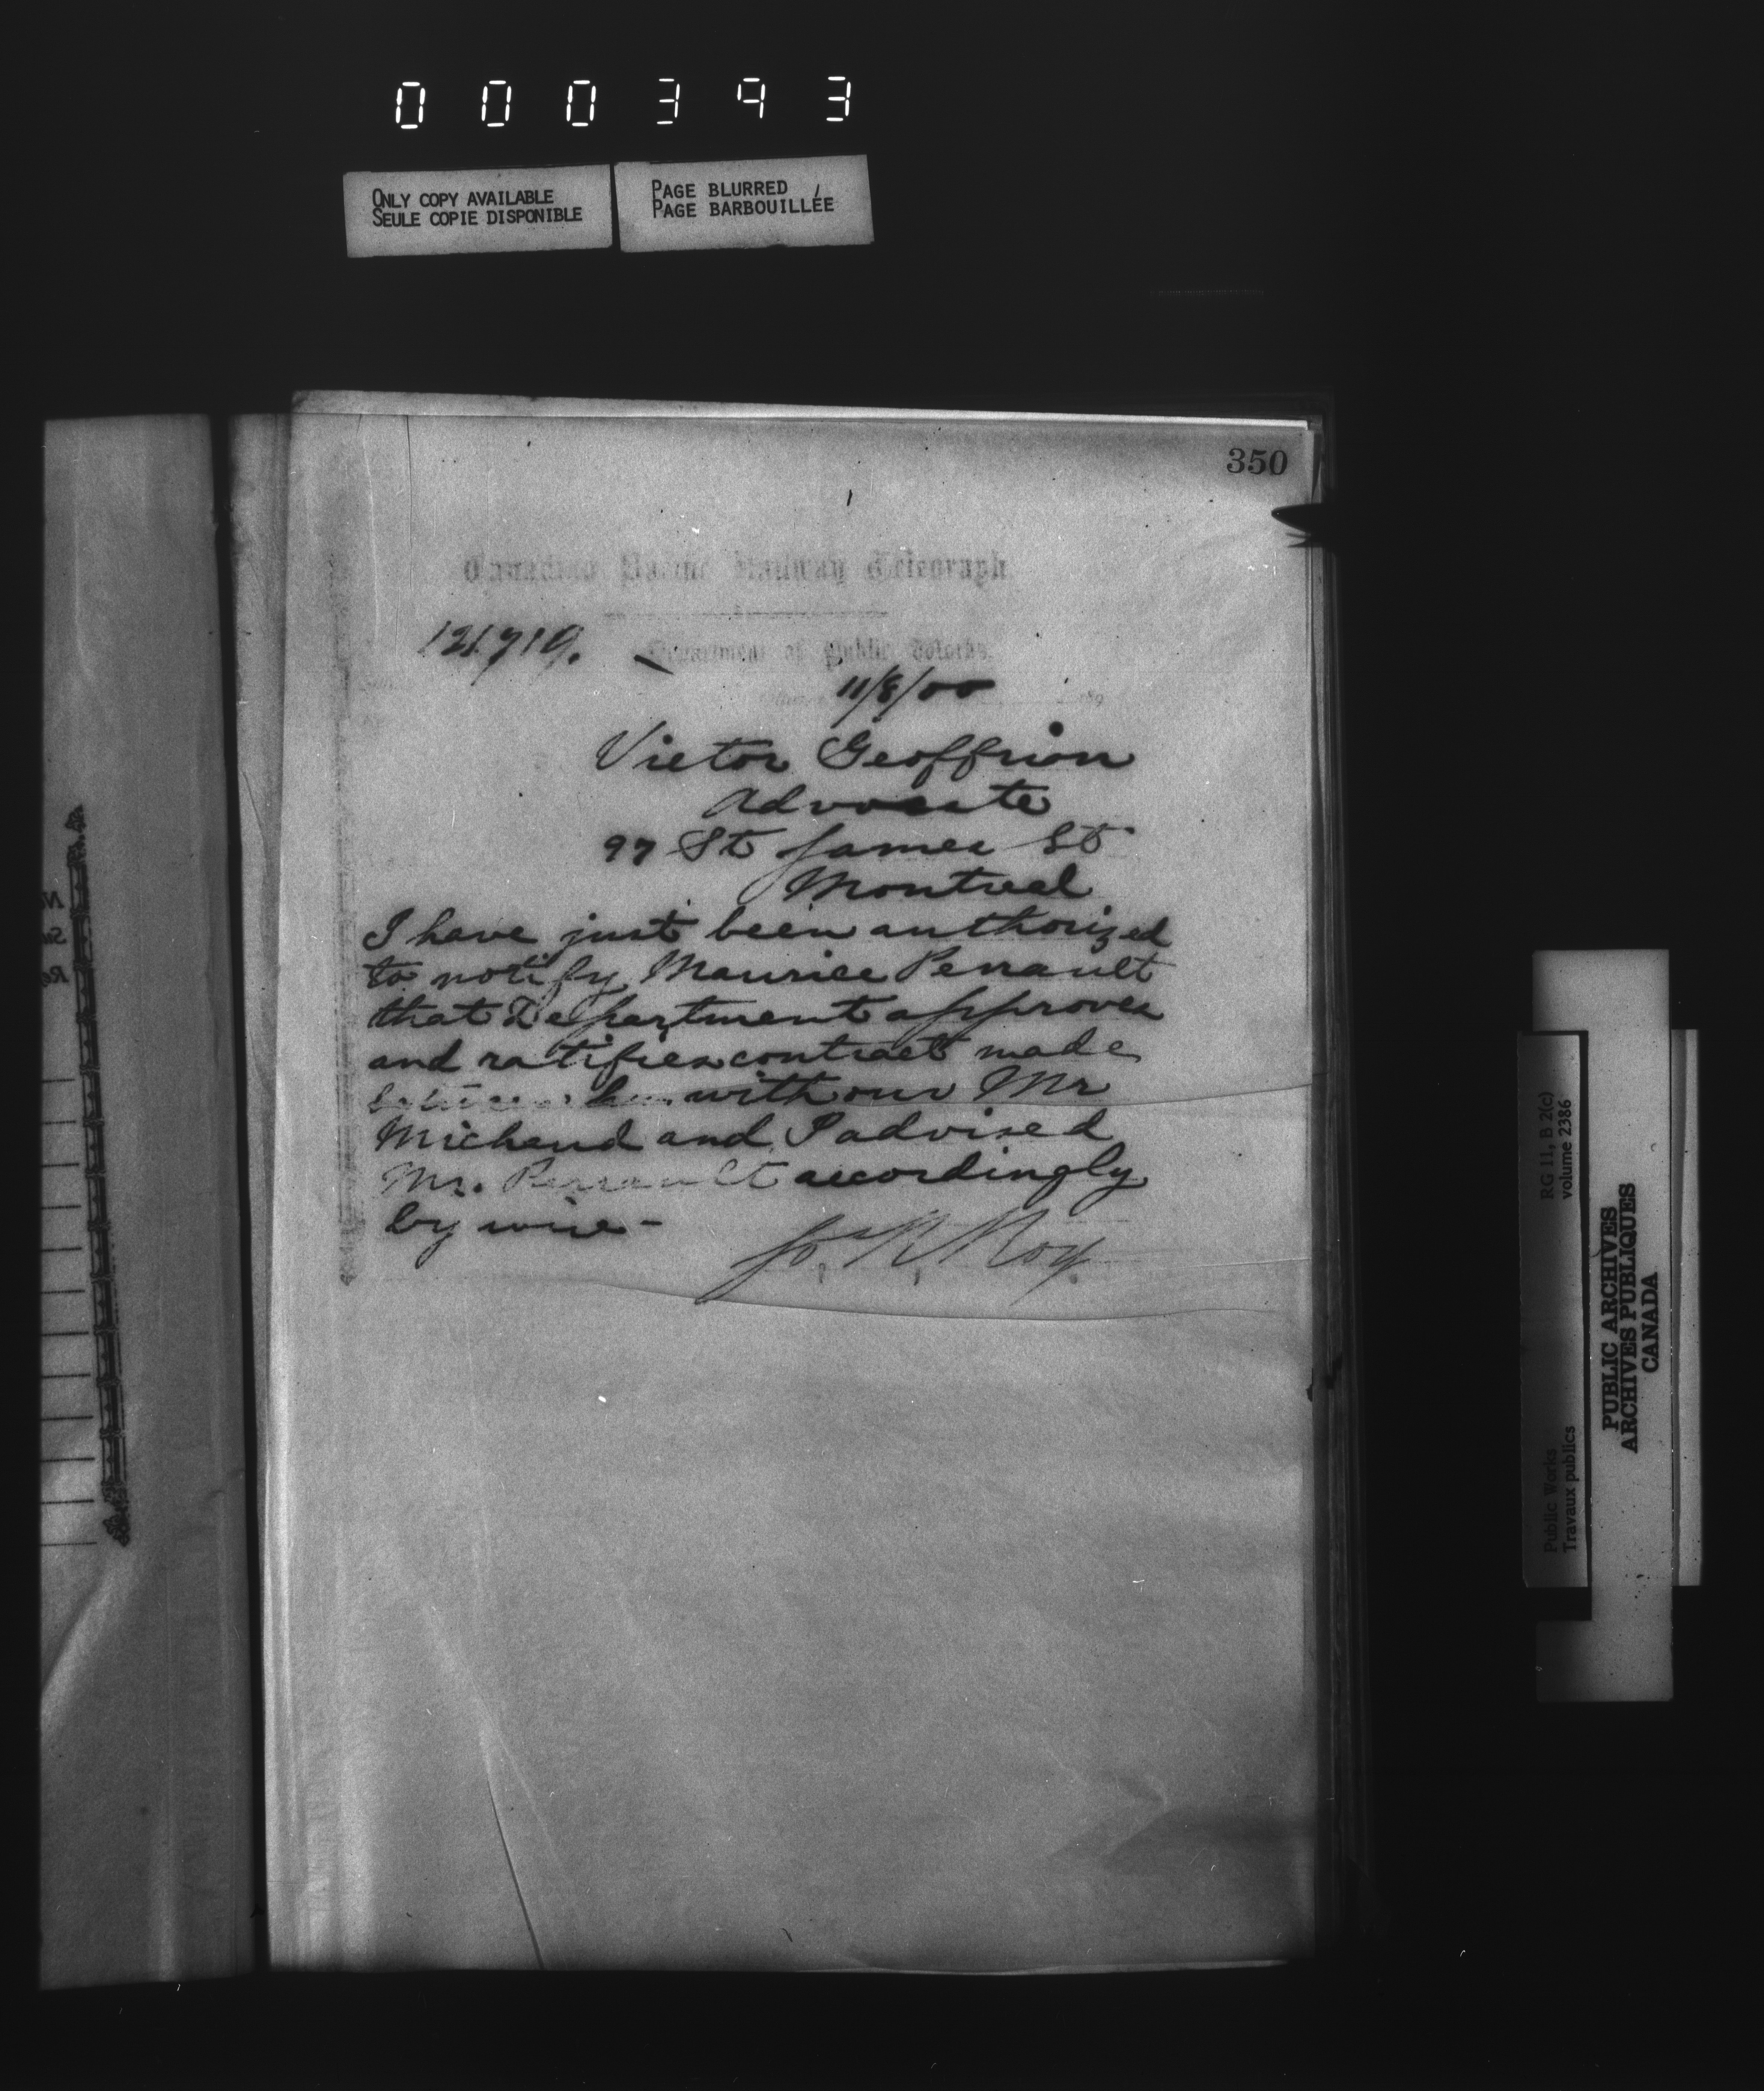 000393
ONLY COPY AVAILABLE
SEULE COPIE DISPONIBLE
PAGE BLURRED
PAGE BARBOUILLÉE
350
Canadian Pacific Railway Telegraph
121719.
Department of Public Works.
11/8/00
Victor Geoffrion
Advocate
97 St James St
Montreal
I have just been authorized
to notify Maurice Perrault
that Department approves
and ratifies contract made
between him with our Mr
Michaud and I advised
Mr. Perrault accordingly
by wire -
Jos R. Roy
RG 11, B 2(c)
volume 2386
Public Works
Travaux publics
PUBLIC ARCHIVES
ARCHIVES PUBLIQUES
CANADA